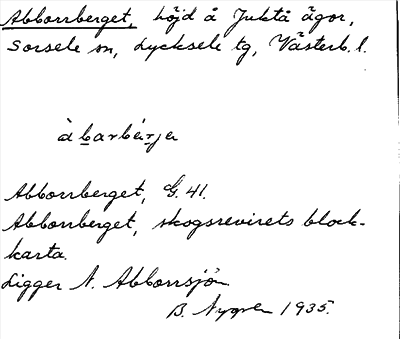 Abborrberget, höjd å Juktå ägor,
Sorsele sn, Lycksele tg, Västerb. l.
àbarbǽrjer
Abborrberget, G. 41.
Abborrberget, skogsrevirets block-
karta.
Ligger N. Abborrsjön
B. Nygren 1935.